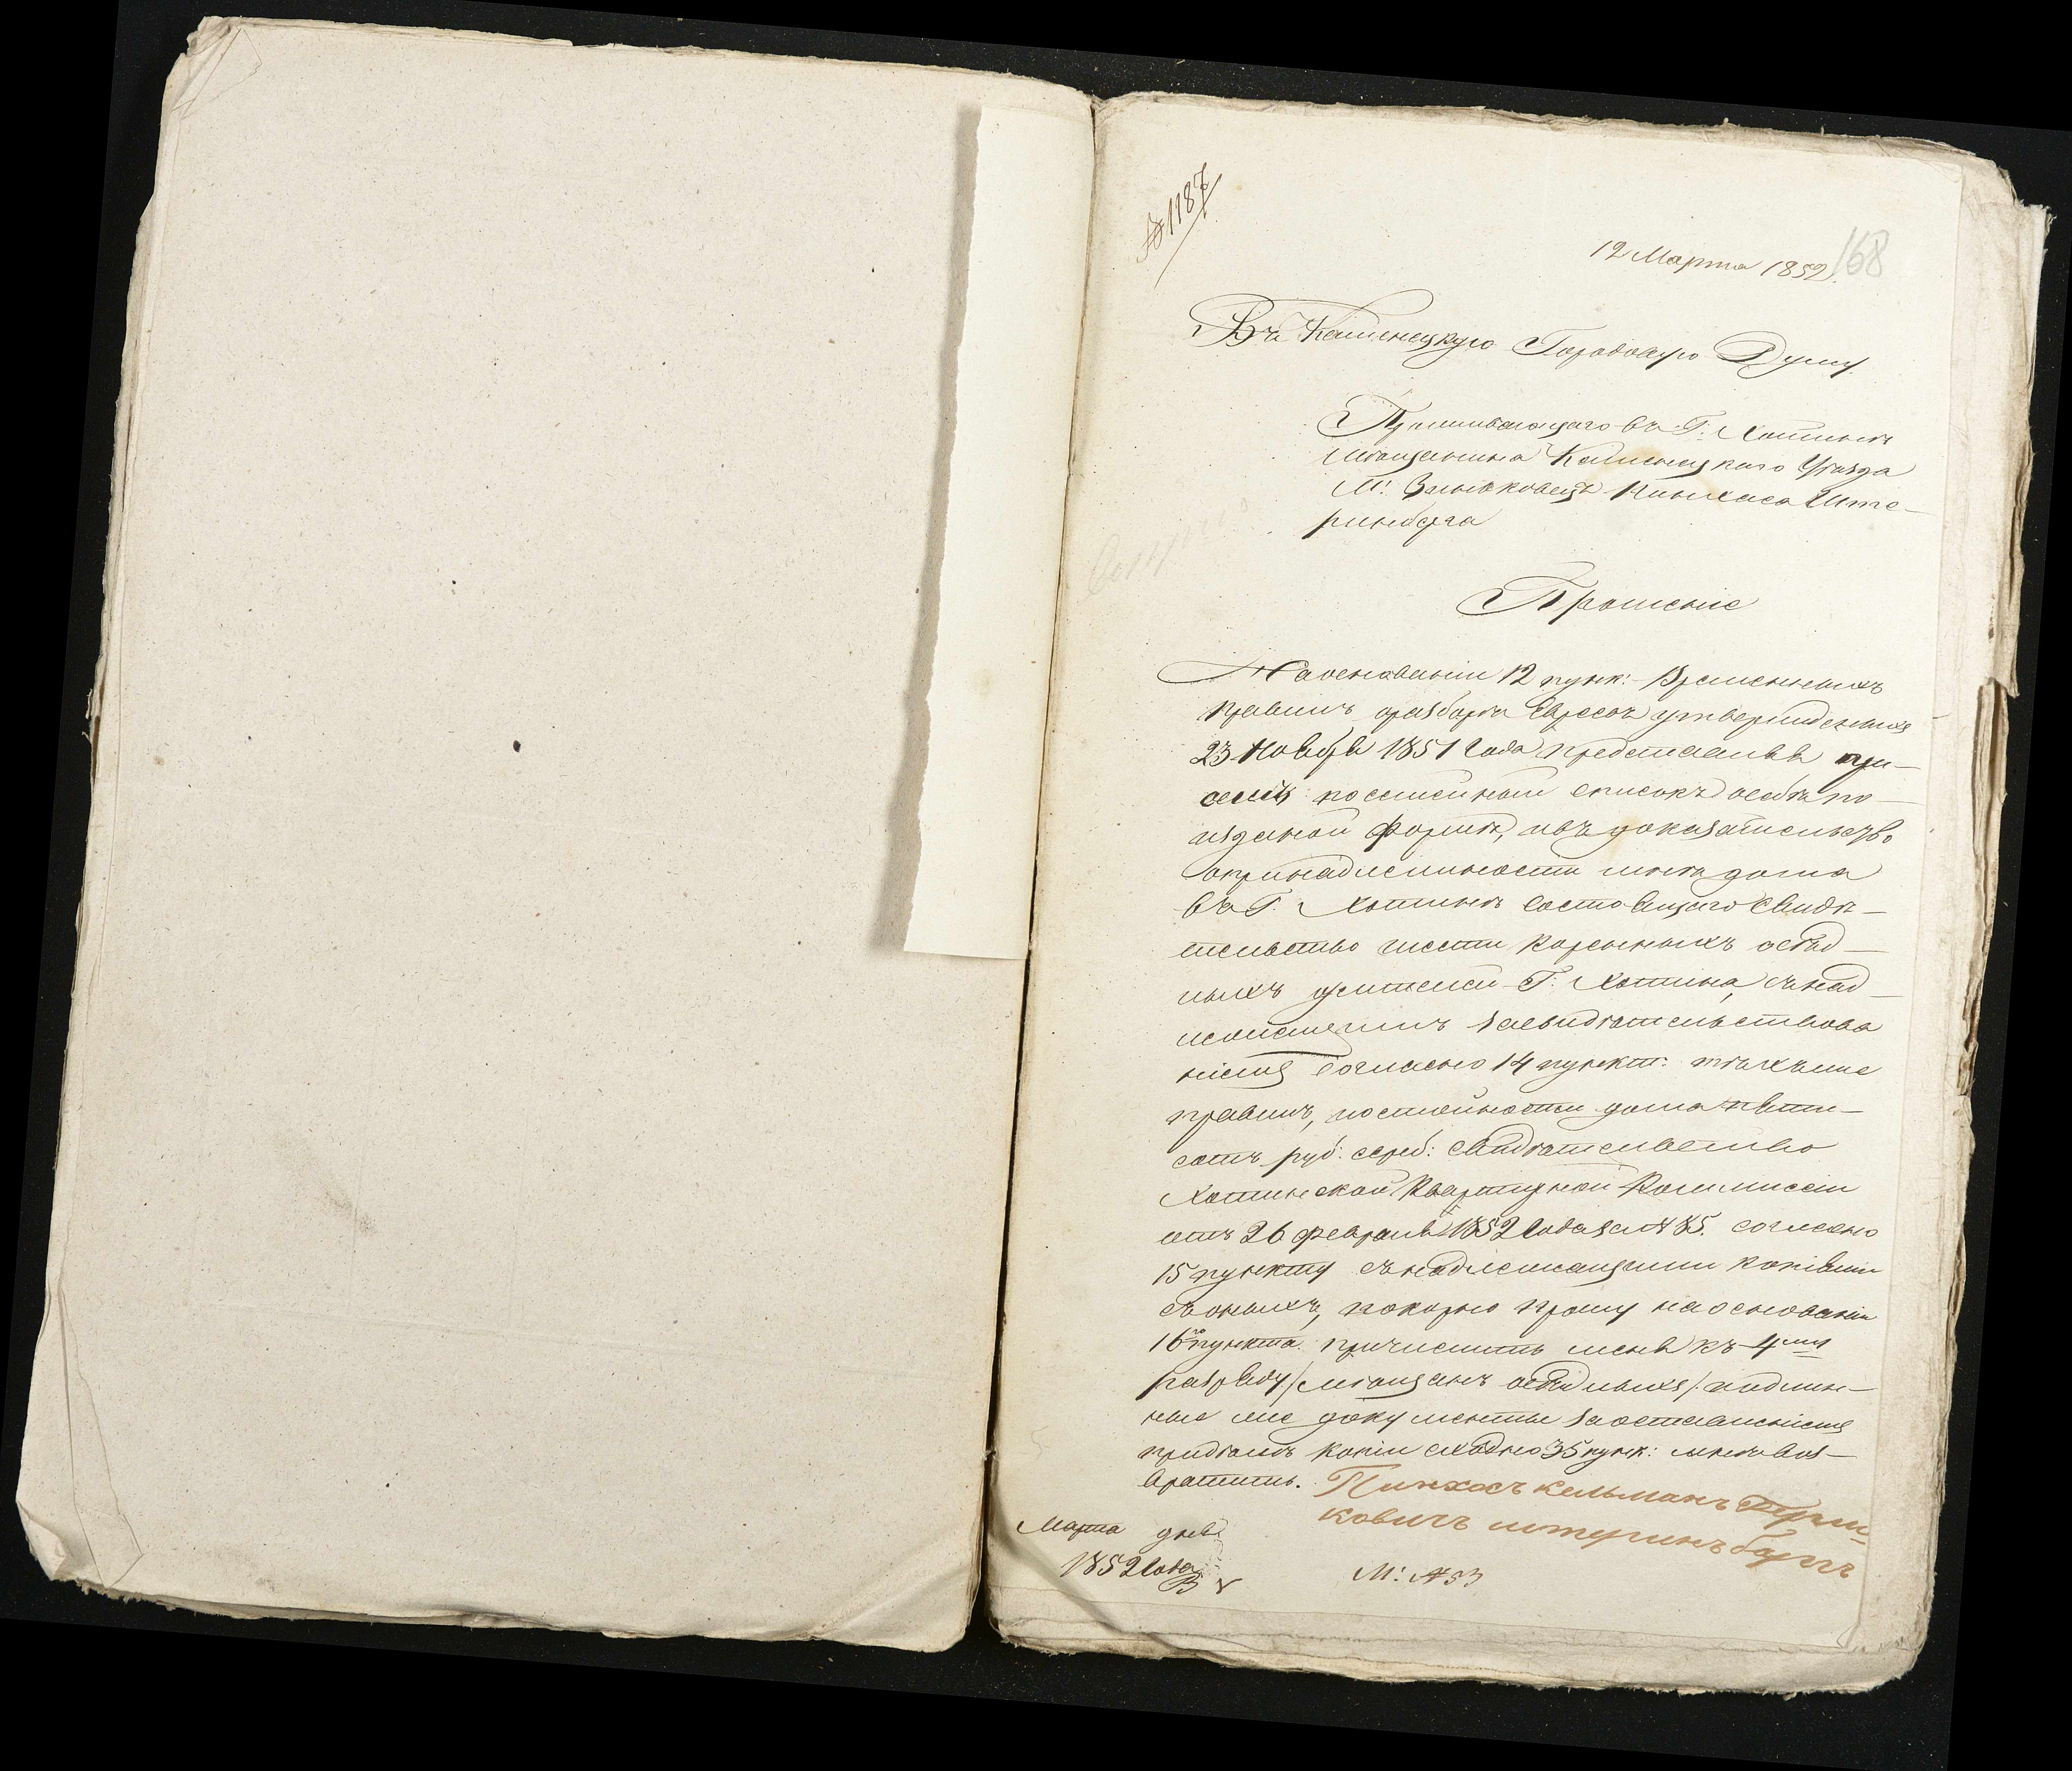 № 1187
12 Марта 1852.
168
Въ Каменецкую Городовую Думу.
Проживающаго въ Г. Хотинѣ
мѣщанина Каменецкаго Уѣзда
М: ПинхасаШте-
ринберга
Прошеніе
На основаніи 12 пунк: Временныхъ
правилъ оразборѣ Евреевъ утвержденныхъ
23 Ноября 1851 года представляя при
семъ посемейный списокъ особѣ по
изданой формѣ, и въ доказательство
опринадлежности мнѣ дома
въ Г. Хотинѣ состоящаго свидѣ-
тельство шести коренныхъ осѣд-
лыхъ жителей Г. Хотина, съ над-
лежащимъ засвидѣтельствова
ніемъ согласно 14 пункт: тѣхъ же
правилъ, постойности дома пяти-
сотъ руб: сереб: свидѣтельство
Хотинской Квартирной Коммиссіи
отъ 26 февраля 1852 года за № 85. согласно
15 пункту съ надлежащими копіями
съ оныхъ, покорно прошу на основаніи
16го пункта причислить меня къ 4му
разряду /мѣщанъ осѣдлыхъ/ подлин-
ные же документы заоставленіемъ
придѣлѣ копіи сходно 35 пунк: мнѣ воз-
вратить. Пинхасъ кельманъ
ковичъ штеринъбергъ
Марта дня
1852 года